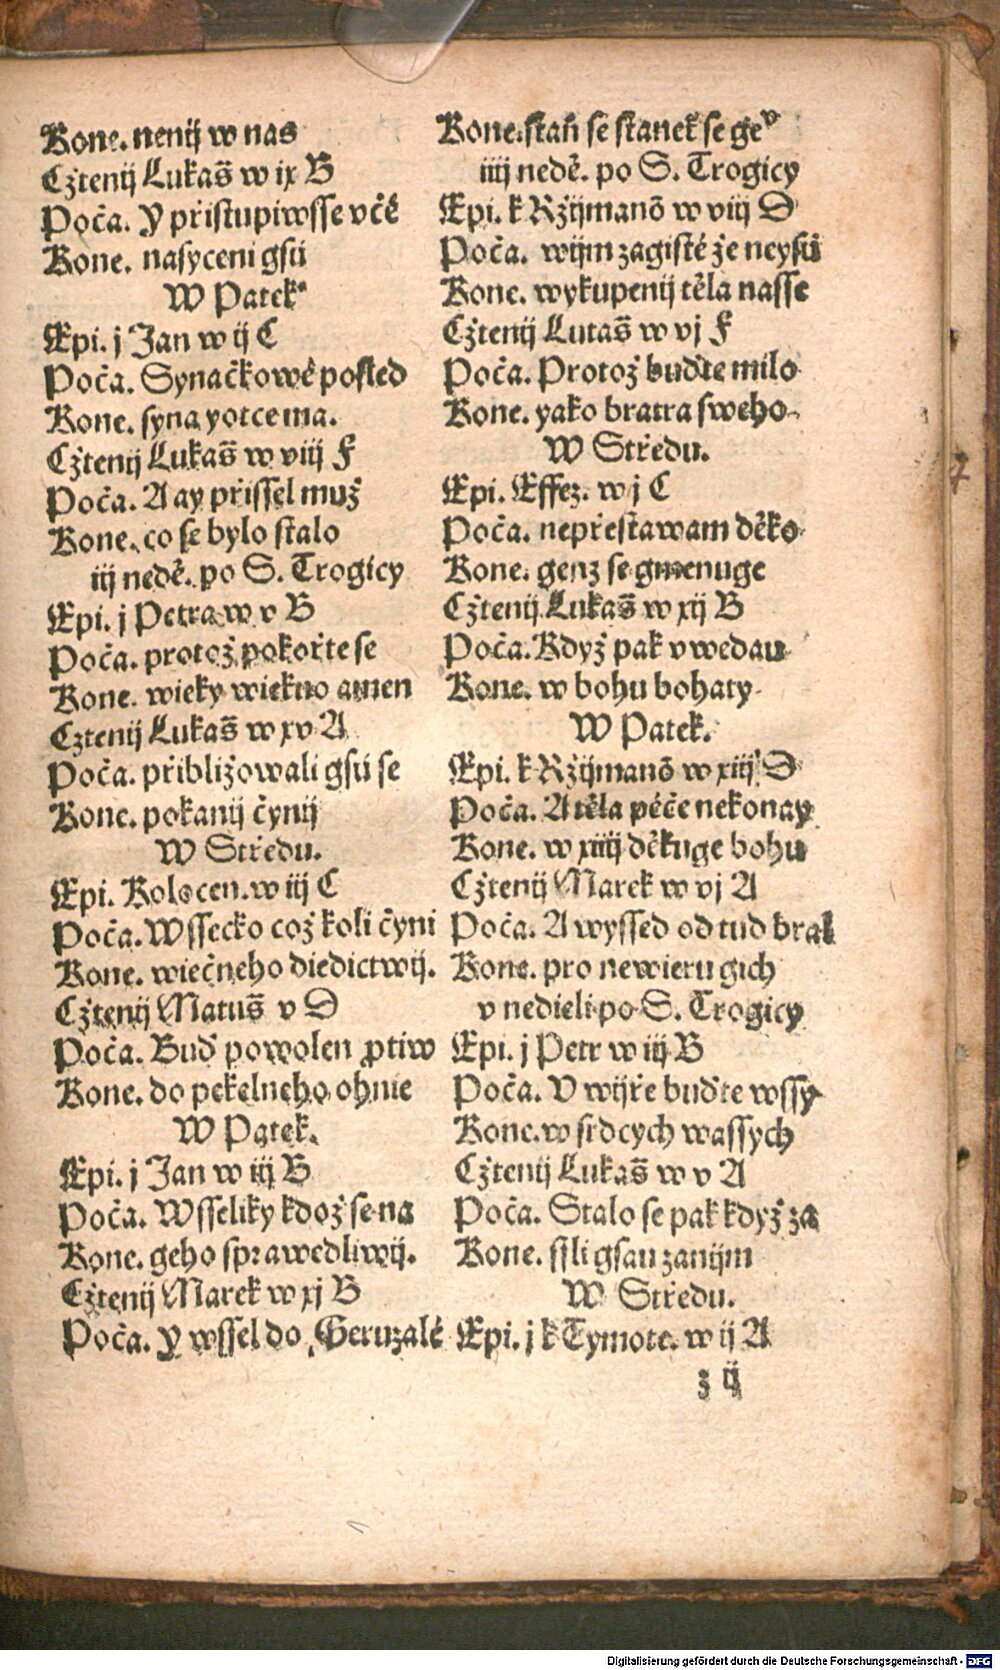 Kone. nenij w nas
Cżtenij Lukaš w ix B
Poča. Y přistupiwsse včē
Kone. nasyceni gsú
W Patek
Epi. j Jan w ij C
Poča. Synačkowé posled
Kone. syna y otce ma.
Cżtenij Lukaš w viij F
Poča. A ay přissel muż
Kone. co se bylo stalo
iij nedě. po S. Trogicy
Epi. j Petra w v B
Poča. protoż pokořte se
Kone. wieky wiekuo amen
Cżtenij Lukaš w xv A
Poča. přibliżowali gsú se
Kone. pokanij čynij
W Středu.
Epi. Kolocen. w iij C
Poča. Wssecko coż koli čyni
Kone. wiečneho diedictwij.
Cżtenij Matuš v D
Poča. Buď powolen ꝓtiw
Kone. do pekelneho ohnie
W Patek.
Epi. j Jan w iij B
Poča. Wsseliky kdoż se na
Kone. geho sprawedliwij.
Cżtenij Marek w xj B
Poča. Y wssel do Geruzalē
Kone. stań se stanek se geº
iiij nedě. po S. Trogicy
Epi. k Rżijmanō w viij D
Poča. wijm zagisté że neysú
Kone. wykupenij těla nasse
Cżtenij Lukaš w vj F
Poča. Protoż buďte milo
Kone. yako bratra sweho
W Středu.
Epi. Effez. w j C
Poča. nepřestawam děko
Kone. genz se gmenuge
Cżtenij Lukaš w xij B
Poča. Kdyż pak vwedau
Kone. w bohu bohaty
W Patek.
Epi. k Rżijmanō w xiij D
Poča. A těla péče nekonay
Kone. w xiiij děkuge bohu
Cżtenij Marek w vj A
Poča. A wyssed od tud bral
Kone. pro newieru gich
v nedieli po S. Trogicy
Epi. j Petr w iij B
Poča. V wijře buďte wssy
Kone. w srdcych wassych
Cżtenij Lukaš w v A
Poča. Stalo se pak kdyż za
Kone. ssli gsau za nijm
W Středu.
Epi. j k Tymote. w ij A
z ij
Digitalisierung gefördert durch die Deutsche Forschungsgemeinschaft - DFG